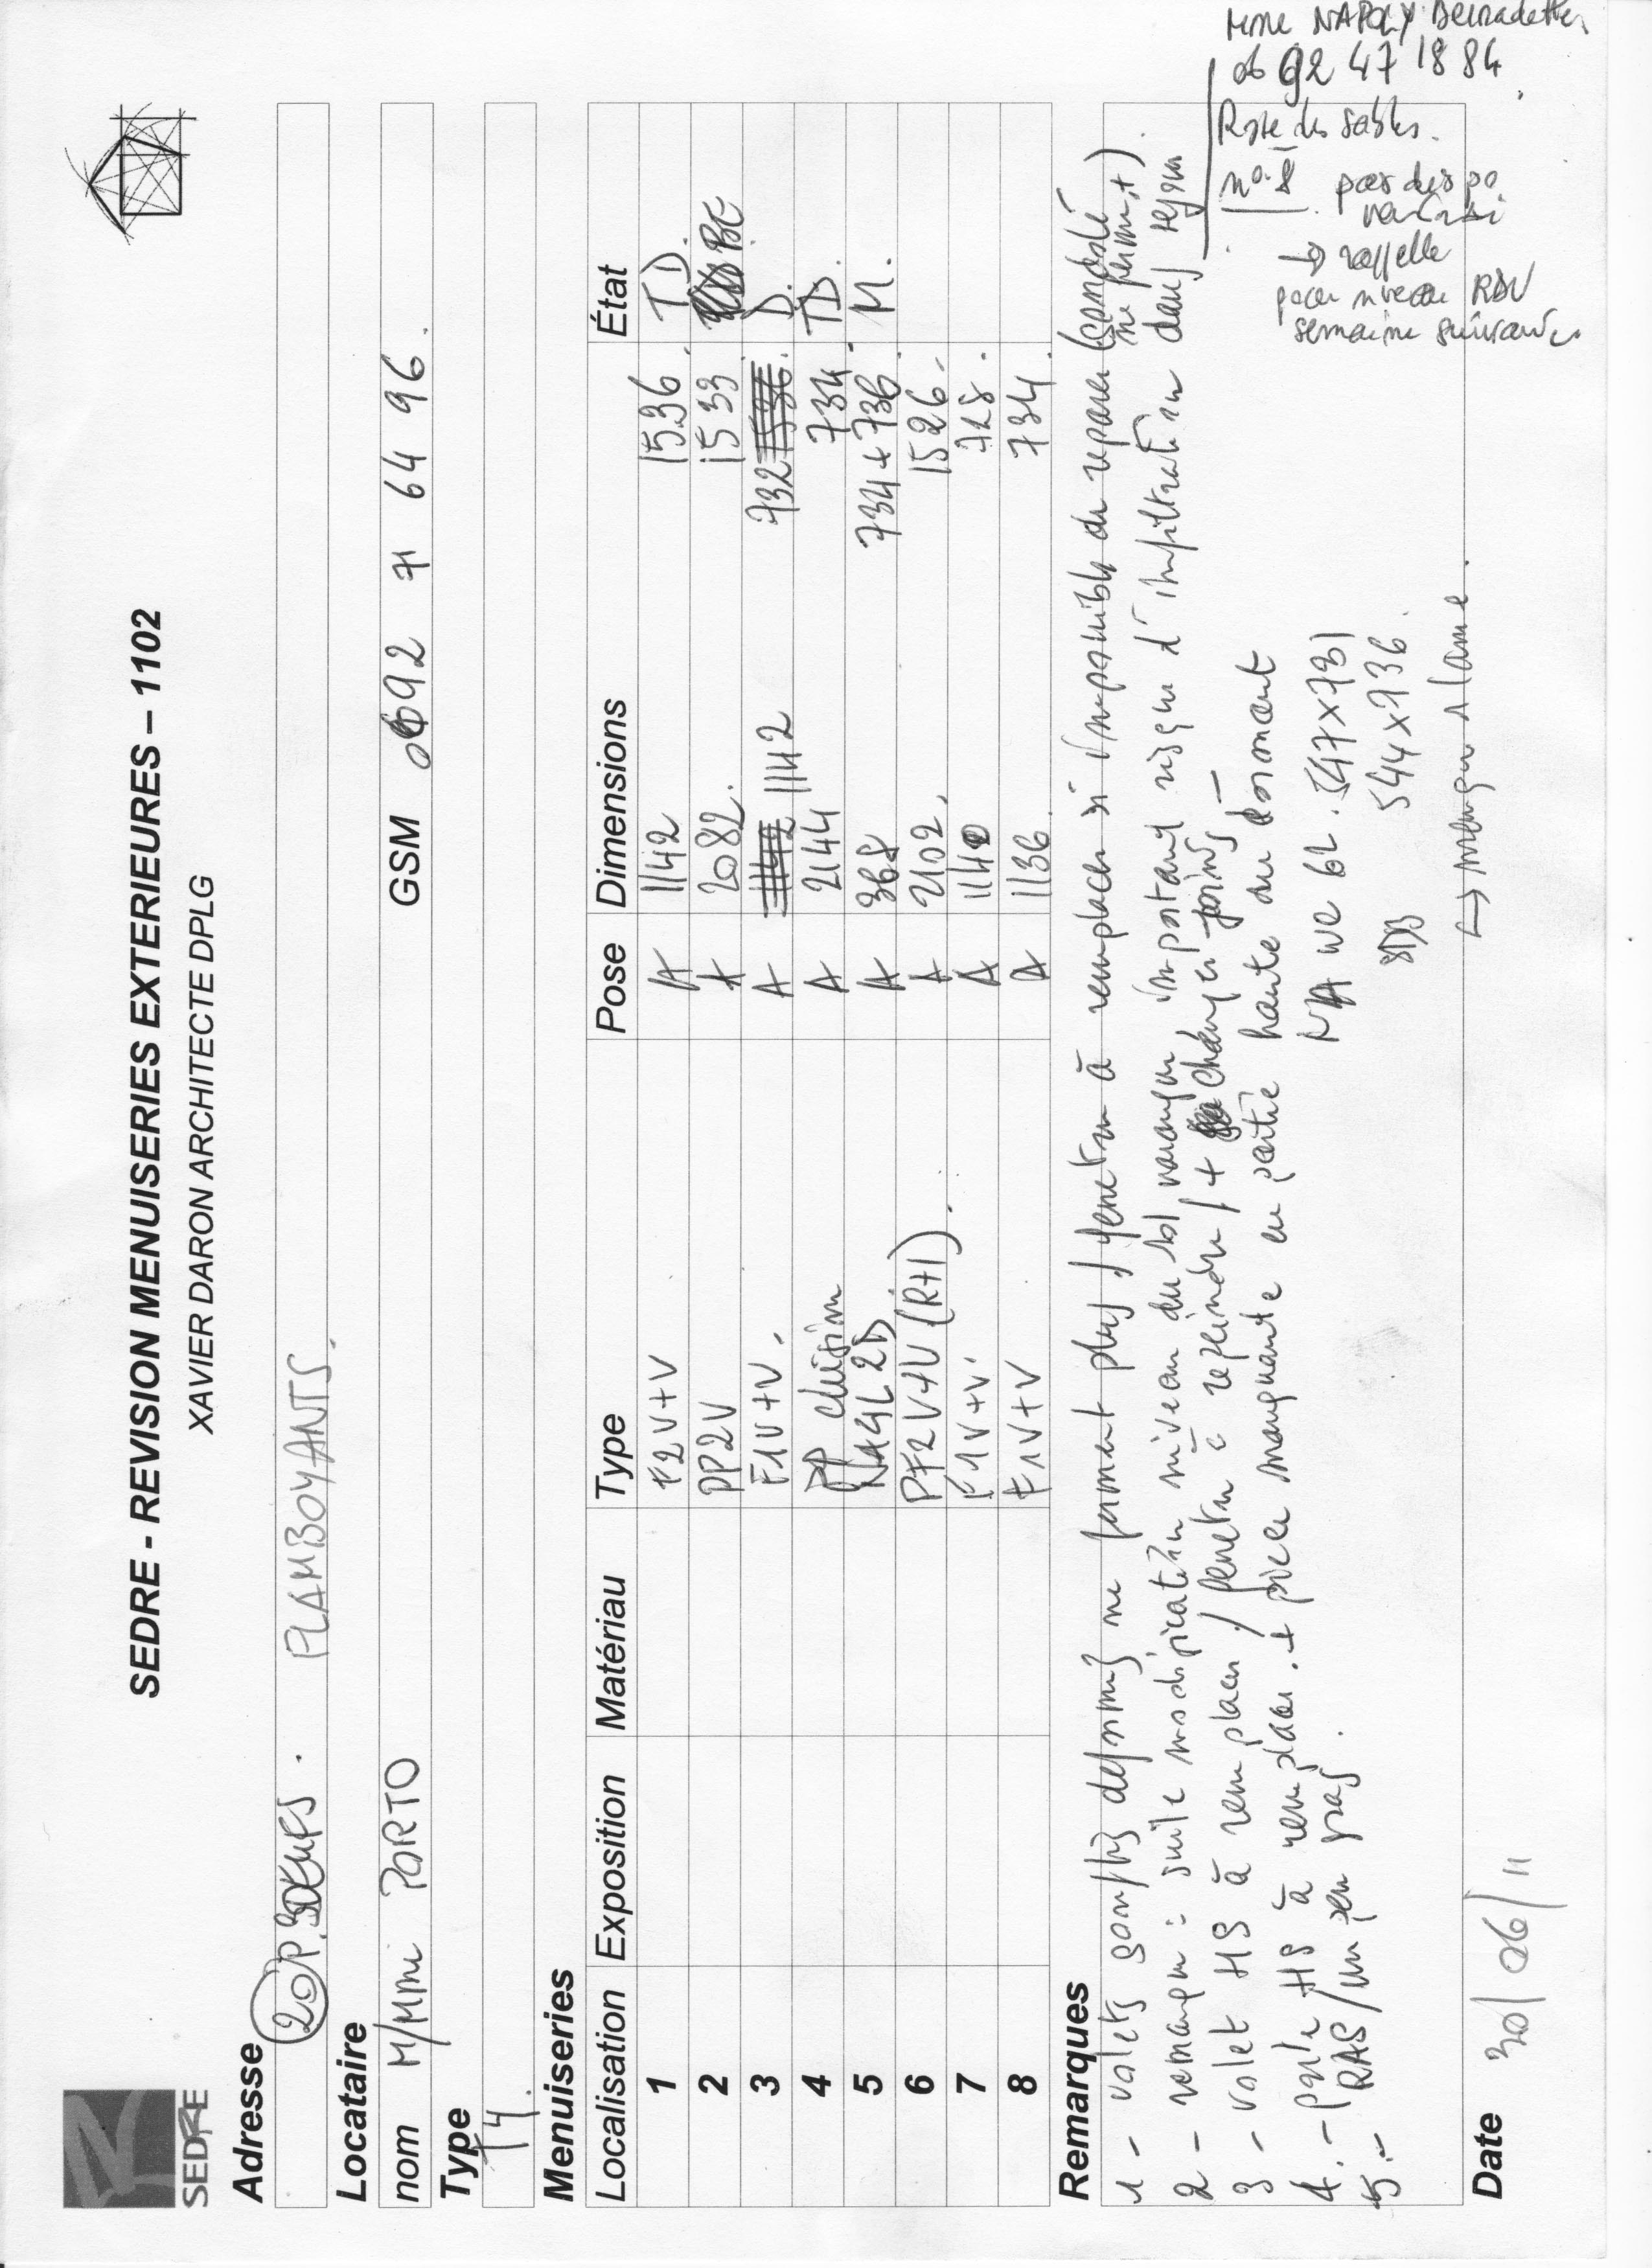 SEDRE
SEDRE - REVISION MENUISERIES EXTERIEURES – 1102
XAVIER DARON ARCHITECTE DPLG
Adresse
20 P. BDEUFS. FLAMBOYANTS.
Locataire
nom M/Mme PORTO GSM 0692 71 64 96.
Type
T4.
Menuiseries
Localisation Exposition Matériau Type Pose Dimensions État
1 F2V+V A 1142 1536. TD.
2 PP2V A 2082. 1533 BE
3 F1V+V. A 1142 732 D.
4 PP A 2144 734. TD.
5 NA4L 2D A 368 734+736. M.
6 PF2V+V (R+1). A 2102. 1526.
7 F1V+V. A 1140 728.
8 F1V+V A 1136. 734.
Remarques
1 - volets gonflés deformés ne ferment plus / fenetre à remplacer si impossible de reparer ne ferme +).
2 - remarque : suite modification niveau du sol varangue important risque d'infiltration dans sejour
3 - volet HS à remplacer / fenetre à repeindre / + changer joins -
4. - porte HS à remplacer. + piece manquante en partie haute du dormant
5. - RAS / un peu gas.
NA WC 62. 547x731
SDB 544x736.
↳ manque 1 lame.
Mme NAPOLY Bernadette
06 92 47 18 84
Rose des Sables.
no. 8 pas dispo
vendredi
→ rappelle
pour niveau RDV
semaine suivante
Date 30/06/11